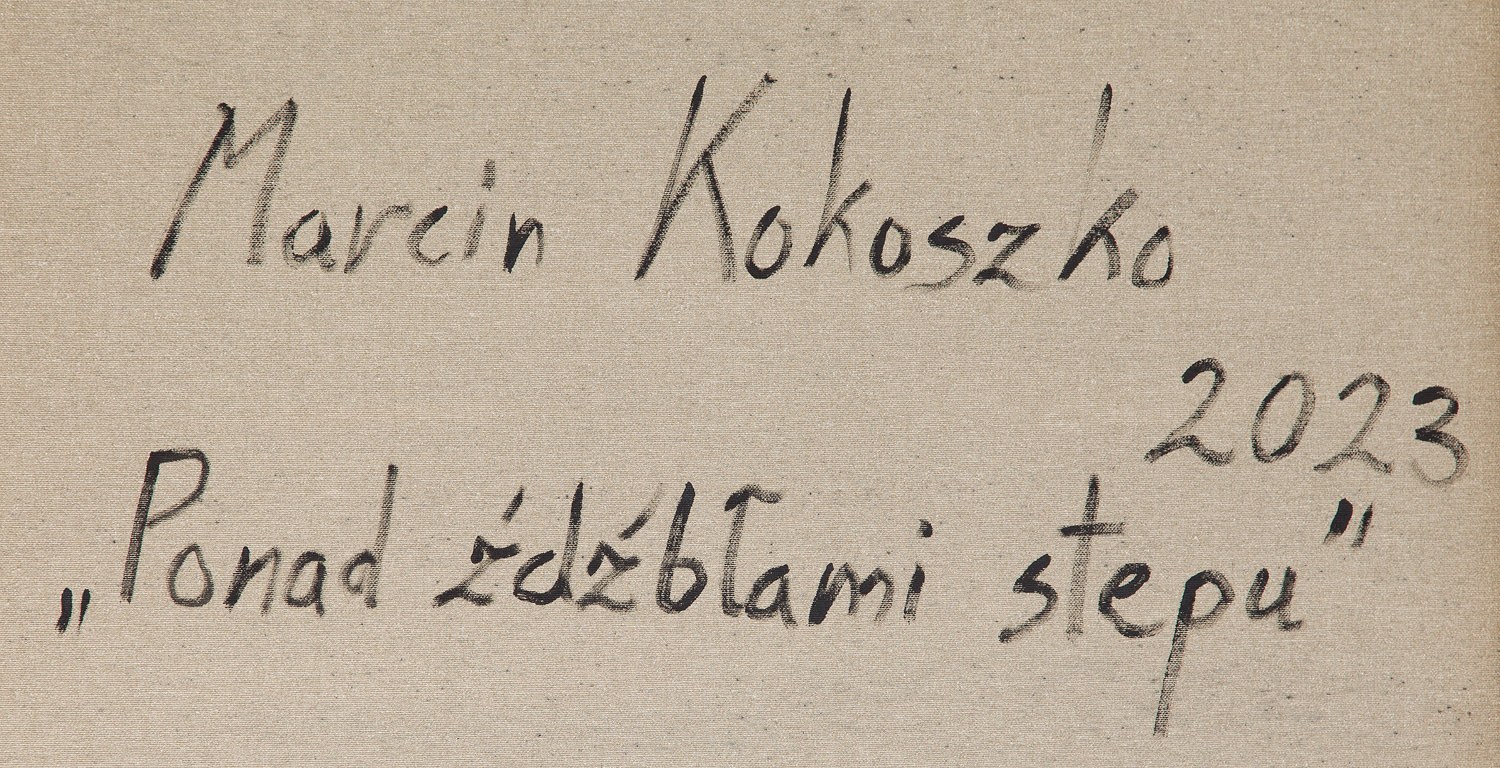 Marcin Kokoszko
2023
„Ponad źdźbłami stepu”